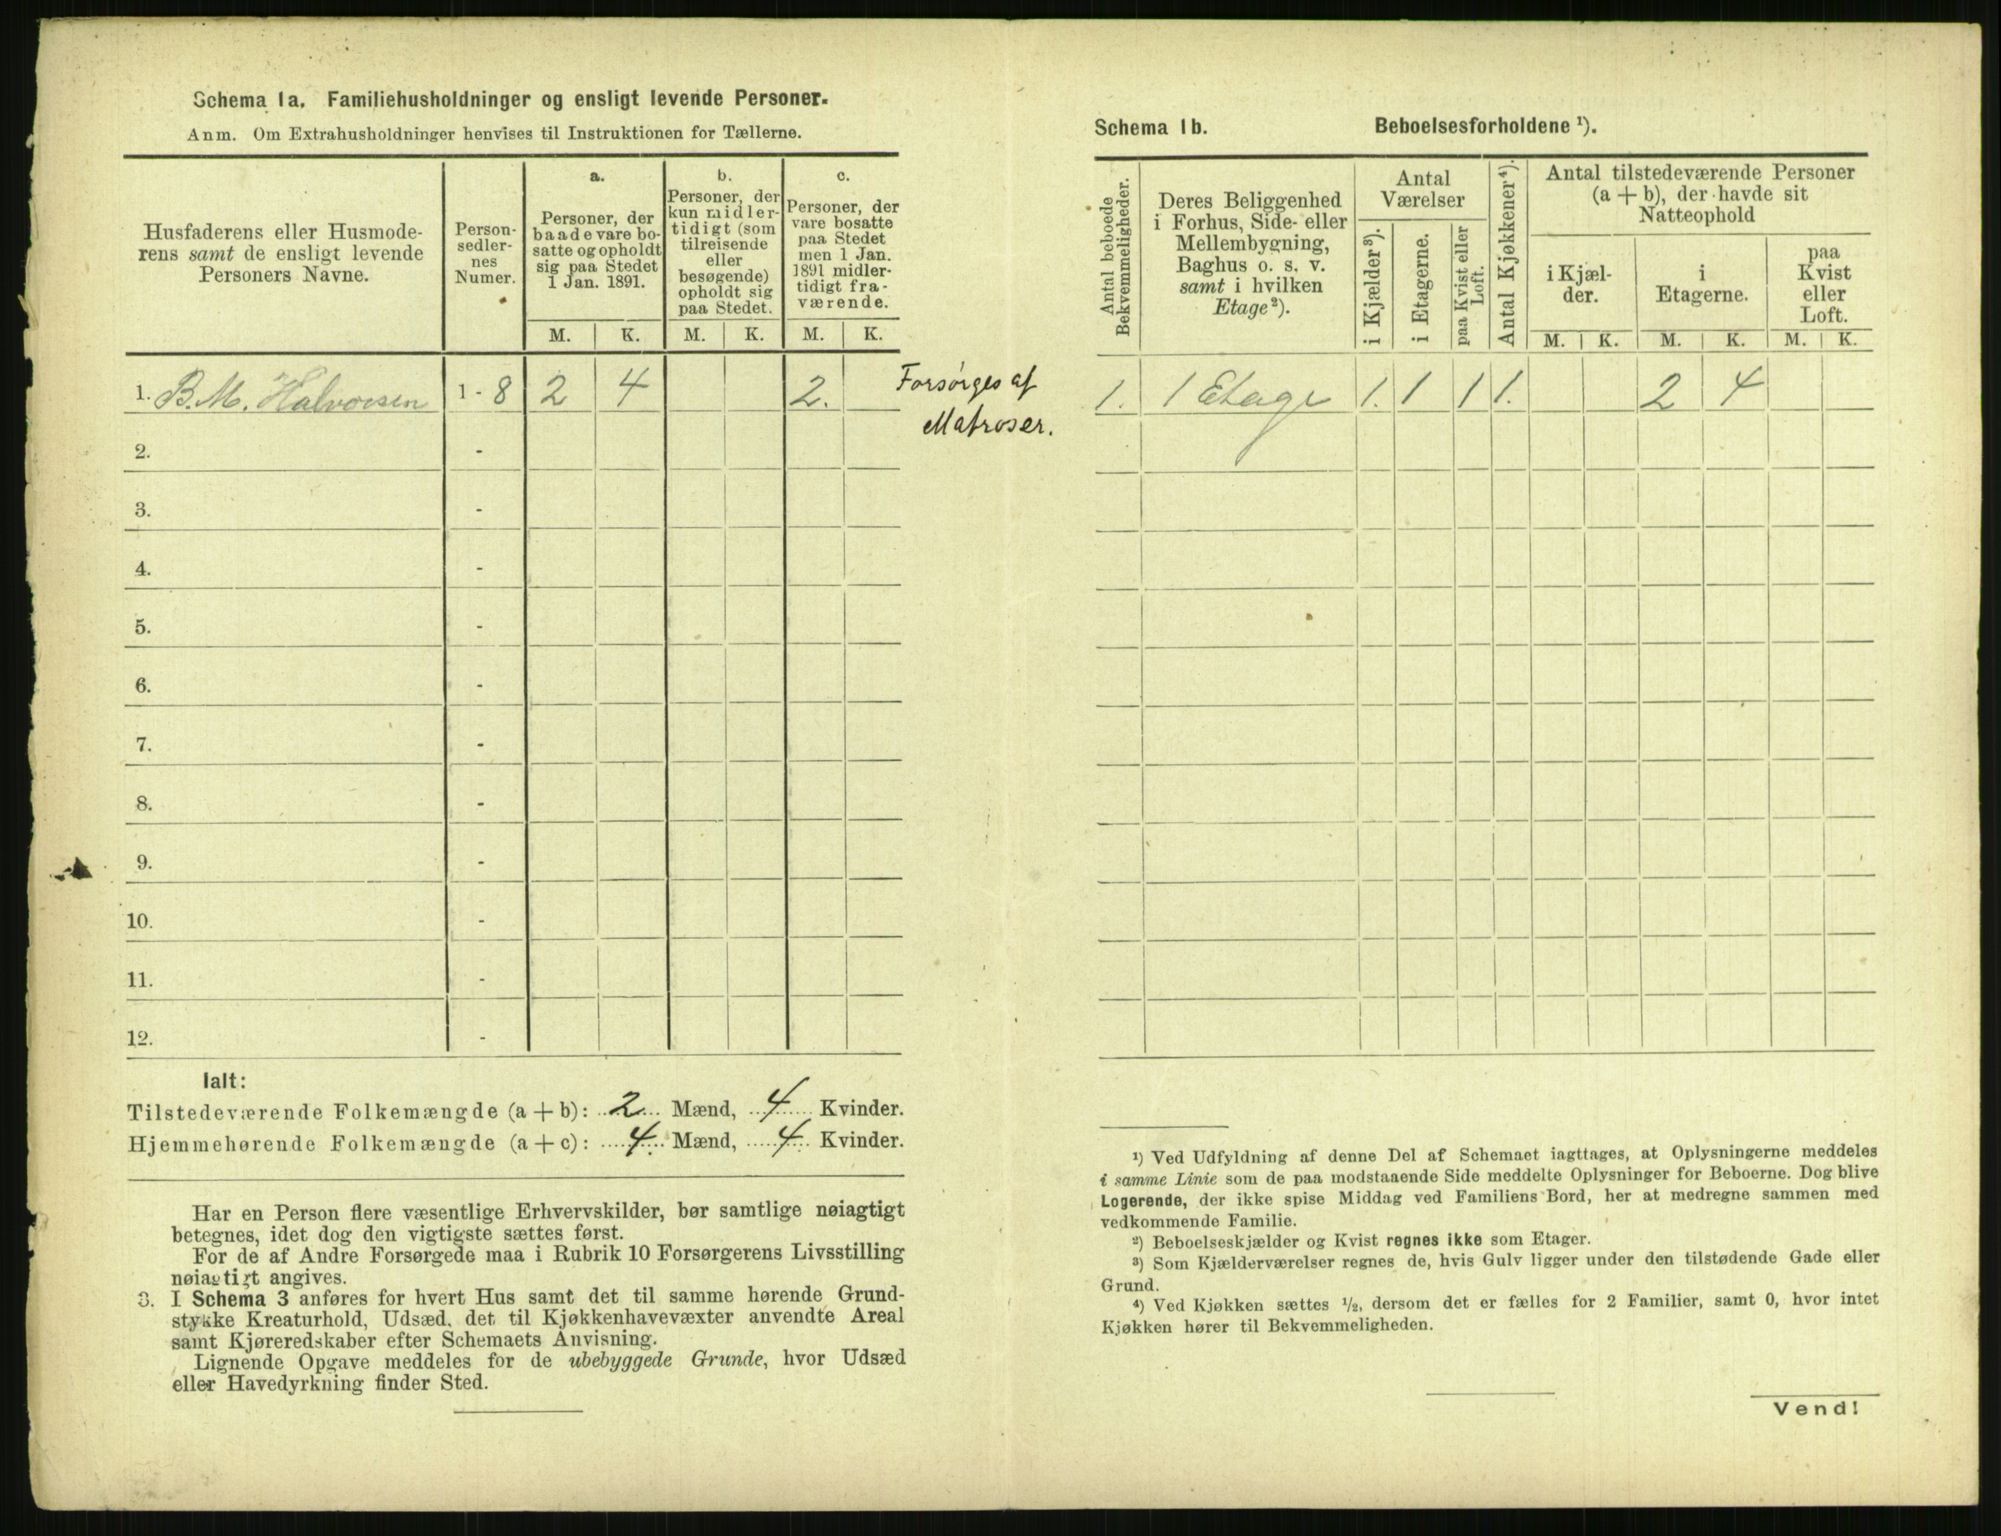 Schema 1a. Familiehusholdninger og ensligt levende Personer.
Anm. Om Extrahusholdninger henvises til Instruktionen for Tællerne.
Husfaderens eller Husmode-
rens samt de ensligt levende
Personers Navne.
Person-
sedler-
nes
Numer.
a.
Personer, der
baade vare bo-
satte og opholdt
sig paa Stedet
1 Jan. 1891.
b.
Personer, der
kun midler-
tidigt (som
tilreisende
eller
besøgende)
opholdt sig
paa Stedet.
c.
Personer, der
vare bosatte
paa Stedet
men 1 Jan.
1891 midler-
tidigt fra-
værende.
M. K. M. K. M. K.
1. B. M. Halvorsen 1 - 8 2 4 2.
Forsørges af
Matroser.
2. -
3. -
4. -
5. -
6. -
7. -
8. -
9. -
10. -
11. -
12. -
Ialt:
Tilstedeværende Folkemængde (a + b): 2 Mænd, 4 Kvinder.
Hjemmehørende Folkemængde (a + c): 4 Mænd, 4 Kvinder.
Har en Person flere væsentlige Erhvervskilder, bør samtlige nøiagtigt
betegnes, idet dog den vigtigste sættes først.
For de af Andre Forsørgede maa i Rubrik 10 Forsørgerens Livsstilling
nøiagtigt angives.
3. I Schema 3 anføres for hvert Hus samt det til samme hørende Grund-
stykke Kreaturhold, Udsæd, det til Kjøkkenhavevæxter anvendte Areal
samt Kjøreredskaber efter Schemaets Anvisning.
Lignende Opgave meddeles for de ubebyggede Grunde, hvor Udsæd
eller Havedyrkning finder Sted.
Schema 1b. Beboelsesforholdene ¹).
Antal beboede
Bekvemmeligheder.
Deres Beliggenhed
i Forhus, Side- eller
Mellembygning,
Baghus o. s. v.
samt i hvilken
Etage²).
Antal
Værelser
i Kjælder³).
i Etagerne.
paa Kvist eller
Loft.
Antal Kjøkkener⁴).
Antal tilstedeværende Personer
(a + b), der havde sit
Natteophold
i Kjæl-
der.
i
Etagerne.
paa
Kvist
eller
Loft.
M. K. M. K. M. K.
1. 1 Etage 1. 1 1 1. 2 4
¹) Ved Udfyldning af denne Del af Schemaet iagttages, at Oplysningerne meddeles
i samme Linie som de paa modstaaende Side meddelte Oplysninger for Beboerne. Dog blive
Logerende, der ikke spise Middag ved Familiens Bord, her at medregne sammen med
vedkommende Familie.
²) Beboelseskjælder og Kvist regnes ikke som Etager.
³) Som Kjælderværelser regnes de, hvis Gulv ligger under den tilstødende Gade eller
Grund.
⁴) Ved Kjøkken sættes ½, dersom det er fælles for 2 Familier, samt 0, hvor intet
Kjøkken hører til Bekvemmeligheden.
Vend!